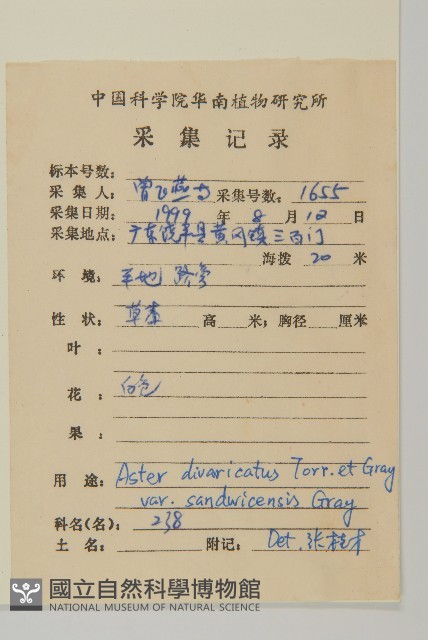 中国科学院华南植物研究所
采集记录
标本号数：
采集人：曾飞燕 采集号数：1655
采集日期：1999 年 8 月 12 日
采集地点：广东饶平县黄冈镇三百门
海拨 20 米
环境：平地 路旁
性状：草本 高 米；胸径 厘米
叶：
花：白色
果：
用途：Aster divaricatus Torr. et Gray
var. sandwicensis Gray
科名(名)：238
土名： 附记：Det. 张桂才
國立自然科學博物館
NATIONAL MUSEUM OF NATURAL SCIENCE